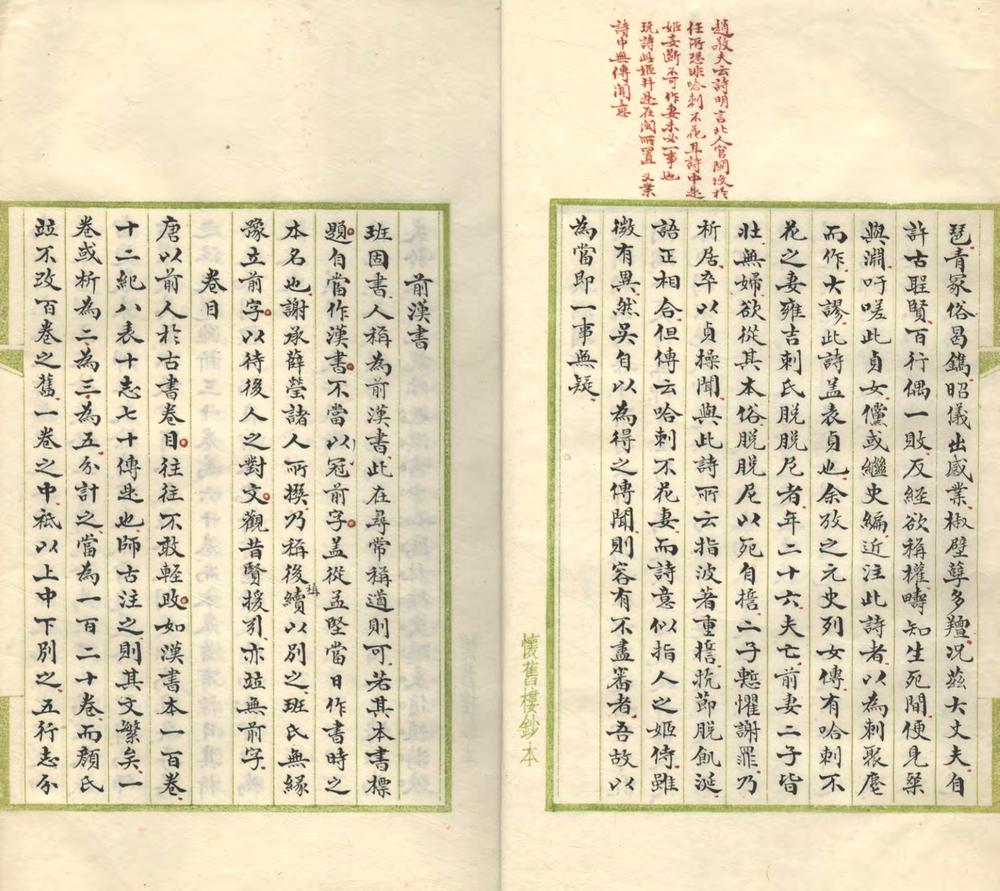 趙敬夫云詩明言北人官閩後於
任所恐非哈剌不花耳詩中此
姬妾斷不可作妻未必一事也
玩詩此姬并是在閩所置 又業
詩中無傳聞意
琵青冢俗曷鐫昭儀出感業椒壁孽多羶况茲大丈夫自
許古聖賢百行偶一敗反經欲稱權疇知生死間便見槊
與淵吁嗟此貞女儻或繼史編近注此詩者以為刺聚麀
而作大謬此詩盖表貞也余攷之元史列女傳有哈剌不
花之妻雍吉剌氏脱脱尼者年二十六夫亡前妻二子皆
壯無婦欲從其本俗脱脱尼以死自誓二子慙懼謝罪乃
析居卒以貞操聞與此詩所云指波著重誓抗節脱飢涎
語正相合但傳云哈剌不花妻而詩意似指人之姬侍雖
微有異然吳自以為得之傳聞則容有不盡審者吾故以
為當即一事無疑
懷舊樓鈔本
前漢書
班固書人稱為前漢書此在尋常稱道則可若其本書標
題自當作漢書不當以冠前字盖從孟堅當日作書時之
本名也謝承薛瑩諸人所撰乃稱後續以別之班氏無緣
豫立前字以待後人之對文觀昔賢援引亦竝無前字
卷目
唐以前人於古書卷目往往不敢輕改如漢書本一百卷
十二紀八表十志七十傳是也師古注之則其文繁矣一
卷或析為二為三為五分計之當為一百二十卷而顏氏
竝不改百卷之舊一卷之中祇以上中下別之五行志分